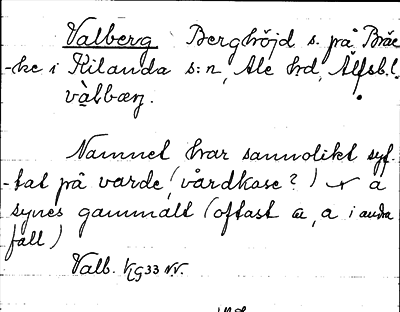 Valberg Berghöjd s. på Bräc-
-ke i Kilanda s:n, Ale hd, Älfsb.l.
vàlbæŋ.
Namnet har sannolikt syf-
-tat på varde (vårdkase?) a
synes gammalt (oftast æ, a i andra
fall)
Valb. KG33 NV.